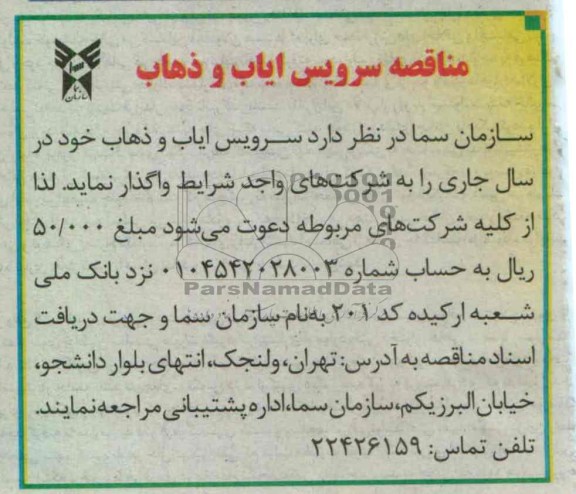 سما
سازمان
مناقصه سرویس ایاب و ذهاب
سازمان سما در نظر دارد سرویس ایاب و ذهاب خود در
سال جاری را به شرکت‌های واجد شرایط واگذار نماید. لذا
از کلیه شرکت‌های مربوطه دعوت می‌شود مبلغ ۵۰/۰۰۰
ریال به حساب شماره ۰۱۰۴۵۴۲۰۲۸۰۰۳ نزد بانک ملی
ParsNamadData
شعبه ارکیده کد ۲۰۱ به‌نام سازمان سما و جهت دریافت
اسناد مناقصه به آدرس: تهران، ولنجک، انتهای بلوار دانشجو،
خیابان البرز یکم، سازمان سما، اداره پشتیبانی مراجعه نمایند.
تلفن تماس: ۲۲۴۲۶۱۵۹